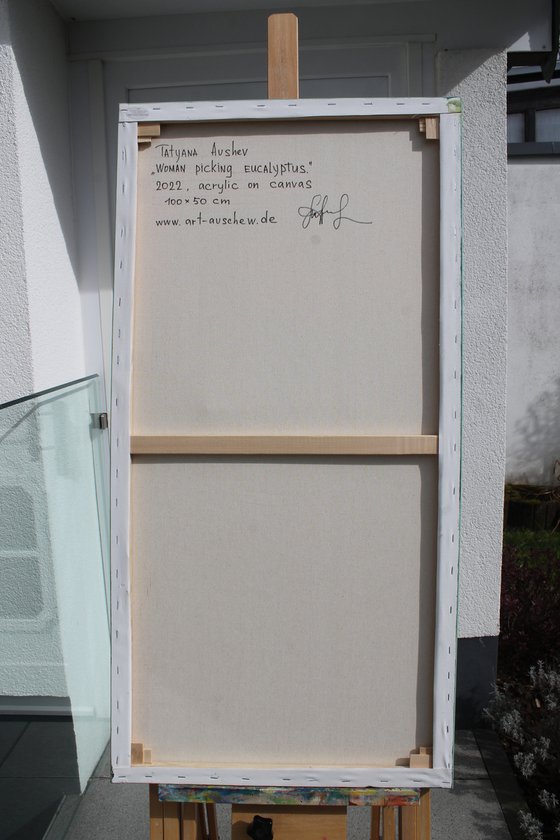 Tatyana Aushev
„Woman picking eucalyptus."
2022, acrylic on canvas
100 × 50 cm
www.art-auschew.de